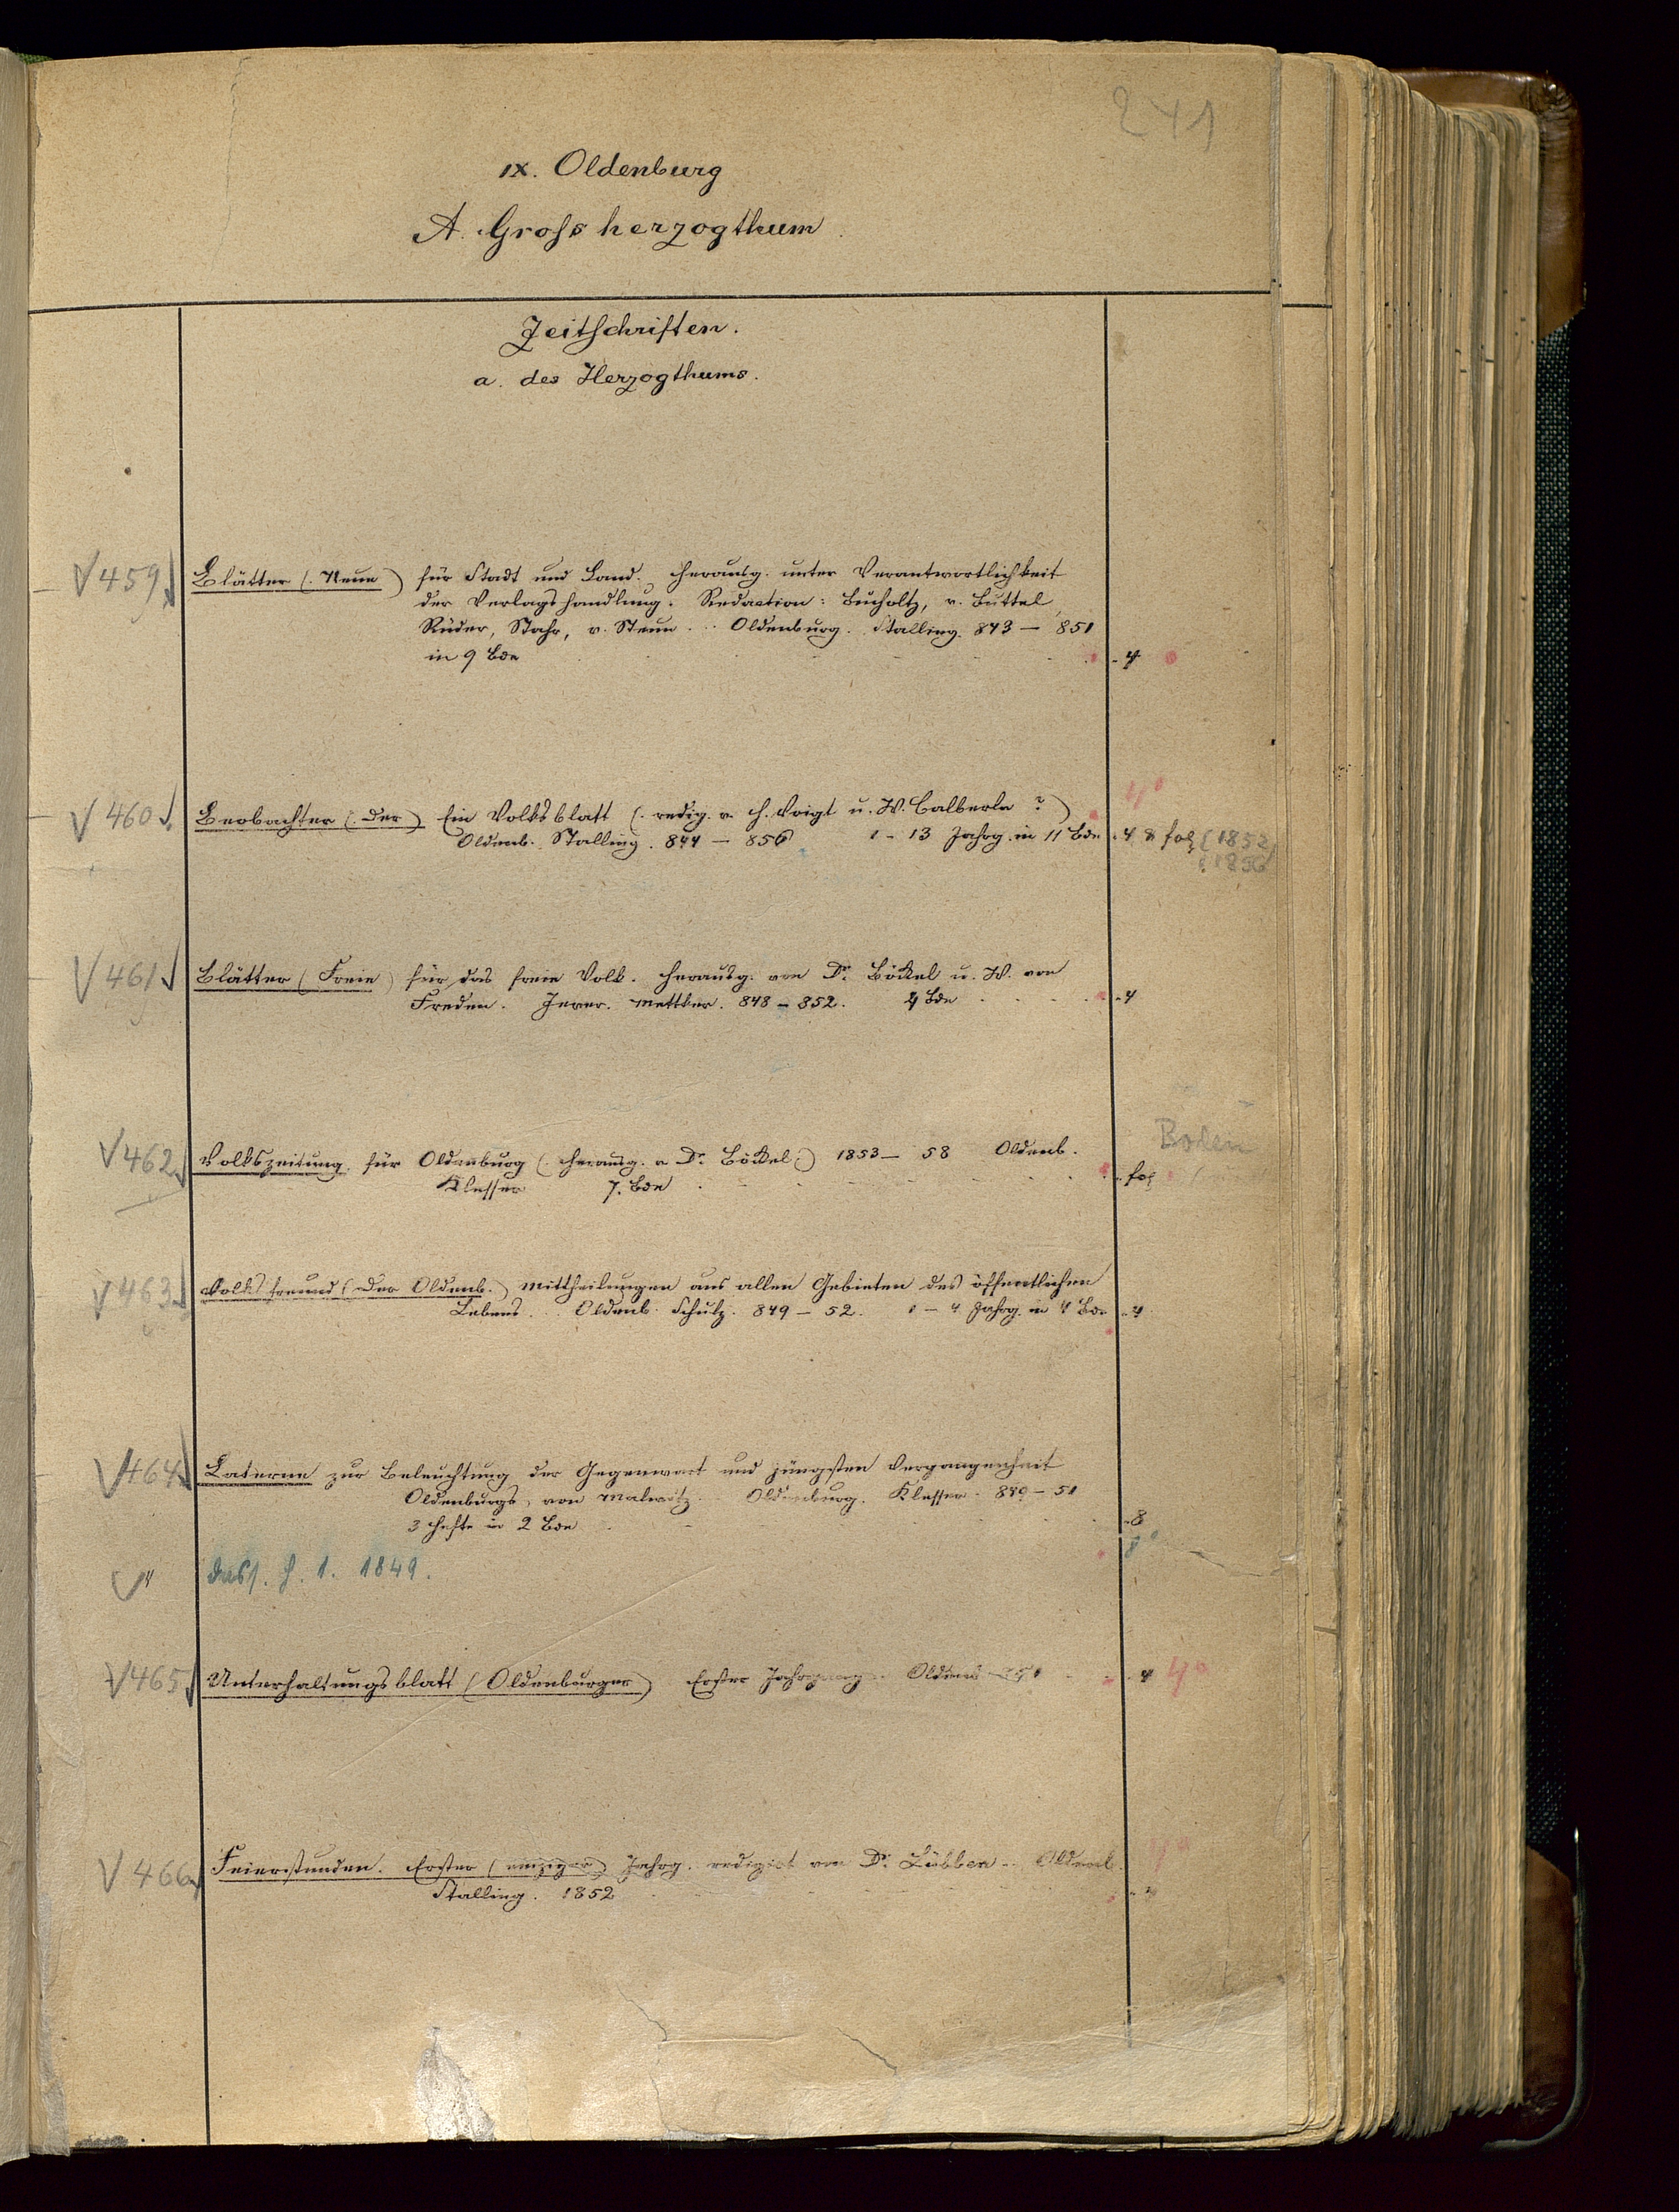 241
IX. Oldenburg
A. Grossherzogthum
Zeitschriften.
a. des Herzogthums.
459 Blätter (Neue) für Stadt und Land. Herausg. unter Verantwortlichkeit
der Verlagshandlung. Redaction: Bucholtz, v. Buttel,
Rüder, Stahr, v. Steun. Oldenburg. Stalling. 843 — 851
in 9 Bde 4
460 Beobachter (Der) Ein Volksblatt (redig. v. H. Voigt u. W. Calberla?) 4°
Oldenb. Stalling. 844 — 856 1 - 13 Jahrg. in 11 Bde 4 & fol (1852,
1856
461 Blätter (Freie) für das freie Volk. Herausg. von Dr. Böckel u. W. von
Freden. Jever. Mettker. 848 — 852. 4 Bde 4
462 Volkszeitung für Oldenburg (Herausg. v. Dr. Böckel.) 1853 — 58 Oldenb.
Klesser 7. Bde fol
463 Volksfreund (Der Oldenb.) Mittheilungen aus allen Gebieten des öffentlichen
Lebens. Oldenb. Schulz. 849 — 52. 1 — 4 Jahrg. in 4 Bde 4
464 Laterne zur Beleuchtung der Gegenwart und jüngsten Vergangenheit
Oldenburgs, von Malwitz. Oldenburg. Klesser. 849 — 51
3 Hefte in 2 Bde 8
" dass. H. 1. 1849. 8°
465 Unterhaltungsblatt (Oldenburger) Erster Jahrgang. Oldenb. 4 4°
466 Feierstunden. Erster (einziger) Jahrg. redigirt von Dr. Lübben. Oldenb. 4°
Stalling. 1852